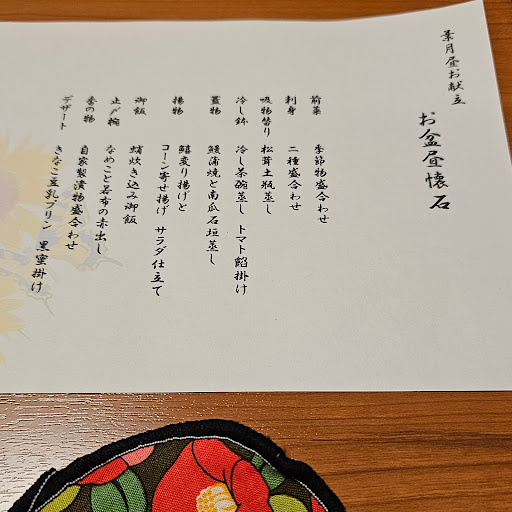 葉月昼お献立
お盆昼懐石
前菜 季節物盛合わせ
刺身 二種盛合わせ
吸物替り 松茸土瓶蒸し
冷し鉢 冷し茶碗蒸し トマト餡掛け
蓋物 鰻蒲焼と南瓜石垣蒸し
揚物 鱚変り揚げと
コーン寄せ揚げ サラダ仕立て
御飯 蛸炊き込み御飯
止め椀 なめこと若布の赤出し
香の物 自家製漬物盛合わせ
デザート きなこ豆乳プリン 黒蜜掛け